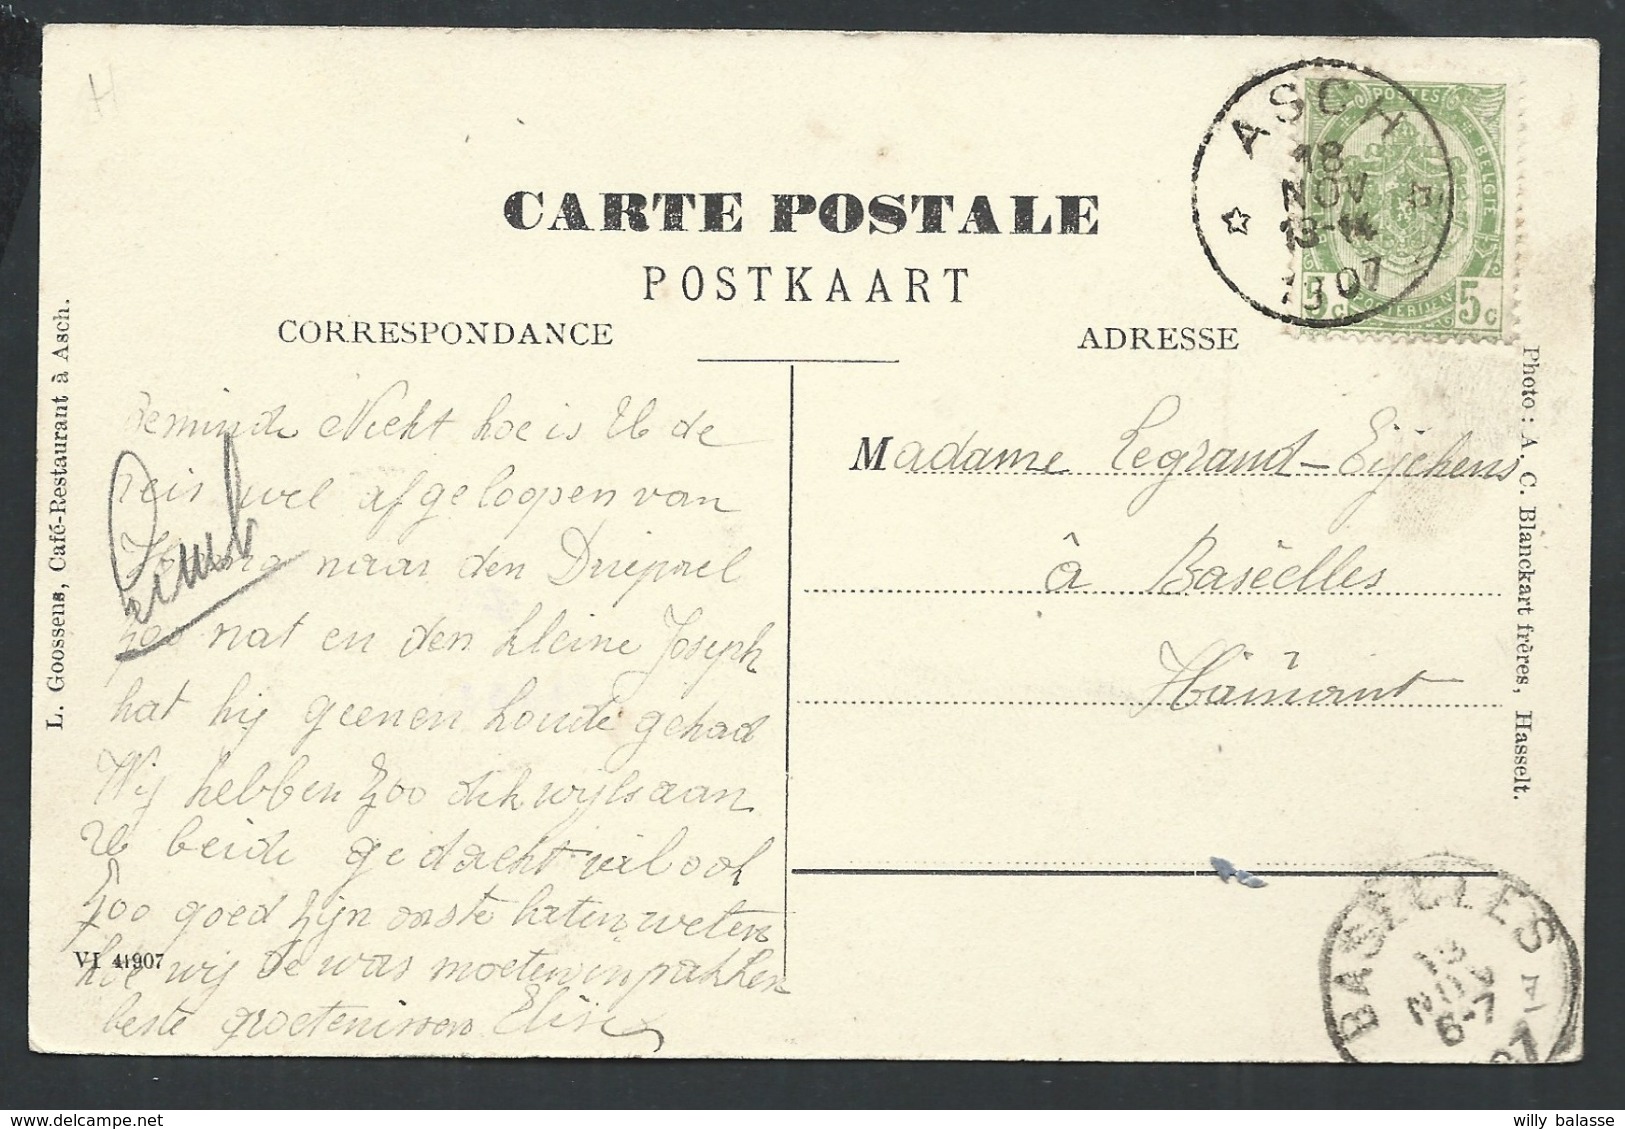 H
CARTE POSTALE
POSTKAART
CORRESPONDANCE
ADRESSE
ASCH
18
NOV
13-14
1907
POSTES BELGIE
POSTERIJEN
5c 5c
L. Goossens, Café-Restaurant à Asch.
Photo: A. C. Blanckart frères, Hasselt.
Beminde Nicht hoe is U de
reis wel afgeloopen van
naar den
nat en den kleine Joseph
hat hij geenen koude gehad
Wij hebben zoo dikwijls aan
U beide gedacht wil ook
zoo goed zijn onste laten weten
hoe wij de was moeten inpakken
beste groetenissen Elise
VI 41907
Madame Legrand-Eijchens
à Basèelles
Hainaut
BASÈCLES
19
NOV
6-7
07
willy balasse